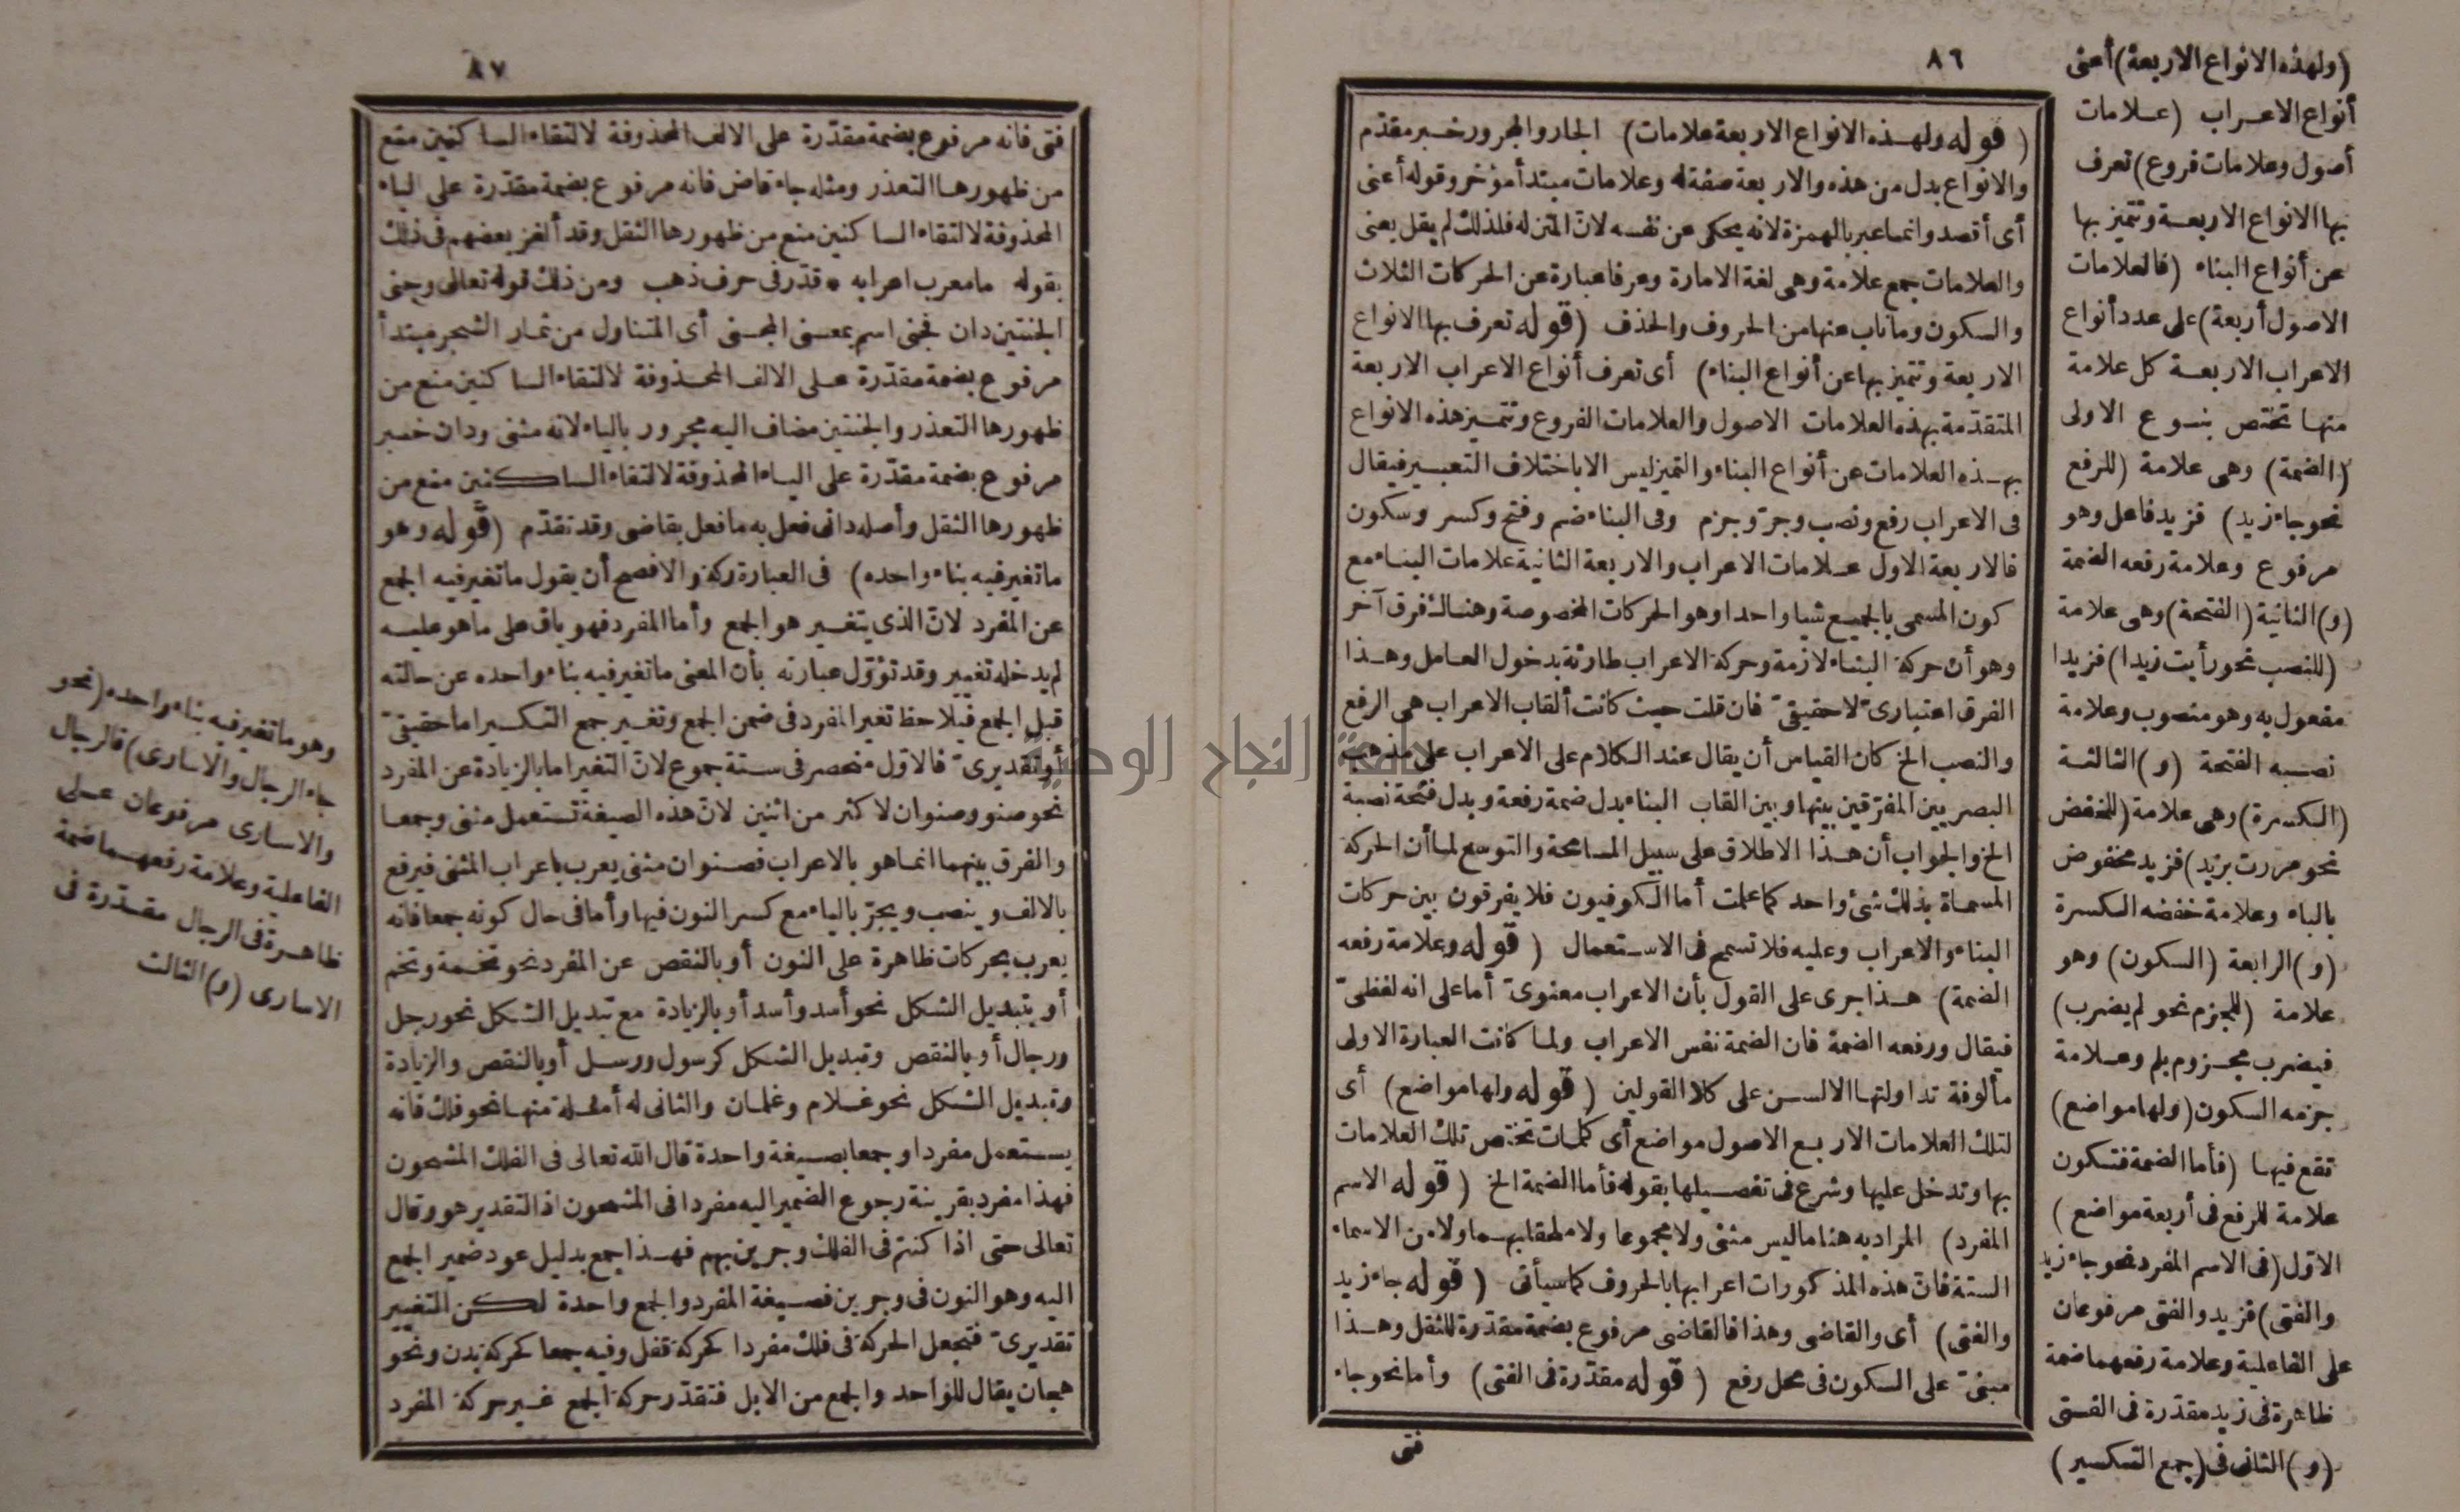 ٨٦
(ولهذه الانواع الاربعة) أعنى
أنواع الاعراب (علامات
أصول وعلامات فروع) تعرف
بها الانواع الاربعة وتتميز بها
عن أنواع البناء (فالعلامات
الاصول أربعة) على عدد أنواع
الاعراب الاربعة كل علامة
منها تختص بنوع الاولى
(الضمة) وهى علامة (للرفع
نحو جاء زيد) فزيد فاعل وهو
مرفوع وعلامة رفعه الضمة
(و) الثانية (الفتحة) وهى علامة
(للنصب نحو رأيت زيدا) فزيدا
مفعول به وهو منصوب وعلامة
نصبه الفتحة (و) الثالثة
(الكسرة) وهى علامة (للخفض
نحو مررت بزيد) فزيد مخفوض
بالباء وعلامة خفضه الكسرة
(و) الرابعة (السكون) وهو
علامة (للجزم نحو لم يضرب)
فيضرب مجزوم بلم وعلامة
جزمه السكون (ولها مواضع)
تقع فيها (فأما الضمة فتكون
علامة للرفع فى أربعة مواضع)
الاول (فى الاسم المفرد نحو جاء زيد
والفتى) فزيد والفتى مرفوعان
على الفاعلية وعلامة رفعهما ضمة
ظاهرة فى زيد مقدرة فى الفتى
(و) الثانى فى (جمع التكسير)
(قوله ولهذه الانواع الاربعة علامات) الجار والمجرور خبر مقدم
والانواع بدل من هذه والاربعة صفة له وعلامات مبتدأ مؤخر وقوله أعنى
أى أقصد وانما عبر بالهمزة لانه يحكى عن نفسه لان المتن له فلذلك لم يقل يعنى
والعلامات جمع علامة وهى لغة الامارة وعرفا عبارة عن الحركات الثلاث
والسكون وما ناب عنها من الحروف والحذف (قوله تعرف بها الانواع
الاربعة وتتميز بها عن أنواع البناء) أى تعرف أنواع الاعراب الاربعة
المتقدّمة بهذه العلامات الاصول والعلامات الفروع وتتميز هذه الانواع
بهذه العلامات عن أنواع البناء والتميز ليس الا باختلاف التعبير فيقال
فى الاعراب رفع ونصب وجرّ وجزم وفى البناء ضم وفتح وكسر وسكون
فالاربعة الاول علامات الاعراب والاربعة الثانية علامات البناء مع
كون المسمى بالجميع شيا واحدا وهو الحركات المخصوصة وهناك فرق آخر
وهو أن حركة البناء لازمة وحركة الاعراب طارئة بدخول العامل وهذا
الفرق اعتبارىّ لا حقيقىّ فان قلت حيث كانت ألقاب الاعراب هى الرفع
والنصب الخ كان القياس أن يقال عند الكلام على الاعراب على مذهب
البصريين المفرّقين بينها وبين القاب البناء بدل ضمة رفعة وبدل فتحة نصبة
الخ والجواب أن هذا الاطلاق على سبيل المسامحة والتوسع لما أن الحركة
المسماة بذلك شئ واحد كما علمت أما الكوفيون فلا يفرقون بين حركات
البناء والاعراب وعليه فلا تسمح فى الاستعمال (قوله وعلامة رفعه
الضمة) هذا جرى على القول بأن الاعراب معنوىّ أما على انه لفظىّ
فيقال ورفعه الضمة فان الضمة نفس الاعراب ولما كانت العبارة الاولى
مألوفة تداولتها الالسن على كلا القولين (قوله ولها مواضع) أى
لتلك العلامات الاربع الاصول مواضع أى كلمات تختص تلك العلامات
بها وتدخل عليها وشرع فى تفصيلها بقوله فأما الضمة الخ (قوله الاسم
المفرد) المراد به هنا ما ليس مثنى ولا مجموعا ولا ملحقا بهما ولا من الاسماء
الستة فان هذه المذكورات اعرابها بالحروف كما سيأتى (قوله جاء زيد
والفتى) أى والقاضى وهذا فالقاضى مرفوع بضمة مقدّرة للثقل وهذا
مبنىّ على السكون فى محل رفع (قوله مقدّرة فى الفتى) وأما نحو جاء
فتى
٨٧
فتى فانه مرفوع بضمة مقدّرة على الالف المحذوفة لالتقاء الساكنين منع
من ظهورها التعذر ومثله جاء قاض فانه مرفوع بضمة مقدّرة على الياء
المحذوفة لالتقاء الساكنين منع من ظهورها الثقل وقد ألغز بعضهم فى ذلك
بقوله ما معرب اعرابه * قدّر فى حرف ذهب ومن ذلك قوله تعالى وجنى
الجنتين دان فجنى اسم بمعنى المجنى أى المتناول من ثمار الشجر مبتدأ
مرفوع بضمة مقدّرة على الالف المحذوفة لالتقاء الساكنين منع من
ظهورها التعذر والجنتين مضاف اليه مجرور بالياء لانه مثنى ودان خبر
مرفوع بضمة مقدّرة على الياء المحذوفة لالتقاء الساكنين منع من
ظهورها الثقل وأصله دانى فعل به ما فعل بقاضى وقد تقدّم (قوله وهو
ما تغير فيه بناء واحده) فى العبارة ركة والافصح أن يقول ما تغير فيه الجمع
عن المفرد لان الذى يتغير هو الجمع وأما المفرد فهو باق على ما هو عليه
لم يدخله تغيير وقد تؤوّل عبارته بأن المعنى ما تغير فيه بناء واحده عن حالته
قبل الجمع فيلاحظ تغير المفرد فى ضمن الجمع وتغير جمع التكسير اما حقيقىّ
أو تقديرىّ فالاول منحصر فى ستة جموع لان التغير اما بالزيادة عن المفرد
نحو صنو وصنوان لاكثر من اثنين لان هذه الصيغة تستعمل مثنى وجمعا
والفرق بينهما انما هو بالاعراب فصنوان مثنى يعرب باعراب المثنى فيرفع
بالالف وينصب ويجرّ بالياء مع كسر النون فيها وأما فى حال كونه جمعا فانه
يعرب بحركات ظاهرة على النون أو بالنقص عن المفرد نحو تخمة وتخم
أو بتبديل الشكل نحو أسد وأسد أو بالزيادة مع تبديل الشكل نحو رجل
ورجال أو بالنقص وتبديل الشكل كرسول ورسل أو بالنقص والزيادة
وتبديل الشكل نحو غلام وغلمان والثانى له أمثلة منها نحو فلك فانه
يستعمل مفردا وجمعا بصيغة واحدة قال الله تعالى فى الفلك المشحون
فهذا مفرد بقرينة رجوع الضمير اليه مفردا فى المشحون اذ التقدير هو وقال
تعالى حتى اذا كنتم فى الفلك وجرين بهم فهذا جمع بدليل عود ضمير الجمع
اليه وهو النون فى وجرين فصيغة المفرد والجمع واحدة لكن التغيير
تقديرىّ فتجعل الحركة فى فلك مفردا كحركة قفل وفيه جمعا كحركة بدن ونحو
هجان يقال للواحد والجمع من الابل فتقدّر حركة الجمع غير حركة المفرد
وهو ما تغير فيه بناء واحده (نحو
جاء الرجال والاسارى) فالرجال
والاسارى مرفوعان على
الفاعلية وعلامة رفعهما ضمة
ظاهرة فى الرجال مقدّرة فى
الاسارى (و) الثالث
جامعة النجاح الوطنية